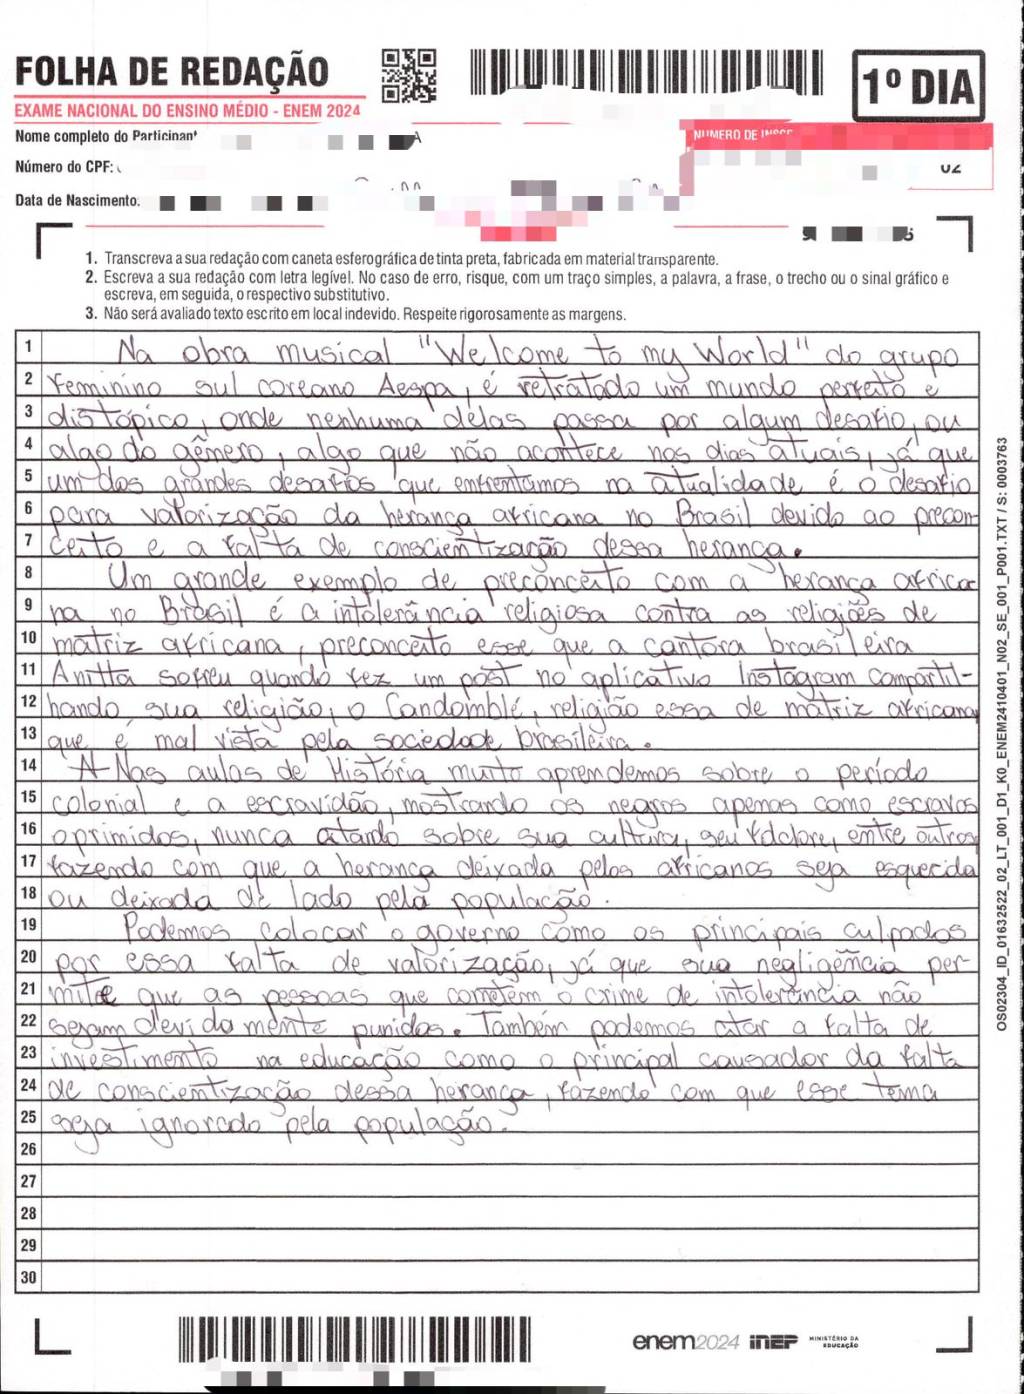 FOLHA DE REDAÇÃO
EXAME NACIONAL DO ENSINO MÉDIO - ENEM 2024
1º DIA
Nome completo do Participant
NÚMERO DE INSCR
Número do CPF:
02
Data de Nascimento.
1. Transcreva a sua redação com caneta esferográfica de tinta preta, fabricada em material transparente.
2. Escreva a sua redação com letra legível. No caso de erro, risque, com um traço simples, a palavra, a frase, o trecho ou o sinal gráfico e
escreva, em seguida, o respectivo substitutivo.
3. Não será avaliado texto escrito em local indevido. Respeite rigorosamente as margens.
1 Na obra musical "Welcome to my World" do grupo
2 feminino sul coreano Aespa, é retratado um mundo perfeito e
3 distópico, onde nenhuma delas passa por algum desafio, ou
4 algo do gênero, algo que não acontece nos dias atuais, já que
5 um dos grandes desafios que enfrentamos na atualidade é o desafio
6 para valorização da herança africana no Brasil devido ao precon-
7 ceito e a falta de conscientização dessa herança.
8 Um grande exemplo de preconceito com a herança africa
9 na no Brasil é a intolerância religiosa contra as religiões de
10 matriz africana, preconceito esse que a cantora brasileira
11 Anitta sofreu quando fez um post no aplicativo Instagram compartil-
12 hando sua religião, o Candomblé, religião essa de matriz africana
13 que é mal vista pela sociedade brasileira.
14 A Nas aulas de História muito aprendemos sobre o período
15 colonial e a escravidão, mostrando os negros apenas como escravos
16 oprimidos, nunca citando sobre sua cultura, seu folclore, entre outros
17 fazendo com que a herança deixada pelos africanos seja esquecida
18 ou deixada de lado pela população.
19 Podemos colocar o governo como os principais culpados
20 por essa falta de valorização, já que sua negligência per-
21 mite que as pessoas que cometem o crime de intolerância não
22 sejam devidamente punidas. Também podemos citar a falta de
23 investimento na educação como o principal causador da falta
24 de conscientização dessa herança, fazendo com que esse tema
25 seja ignorado pela população.
26
27
28
29
30
OS02304_ID_01632522_02_LT_001_D1_K0_ENEM2410401_N02_SE_001_P001.TXT / S: 0003763
enem2024 INEP MINISTÉRIO DA
EDUCAÇÃO